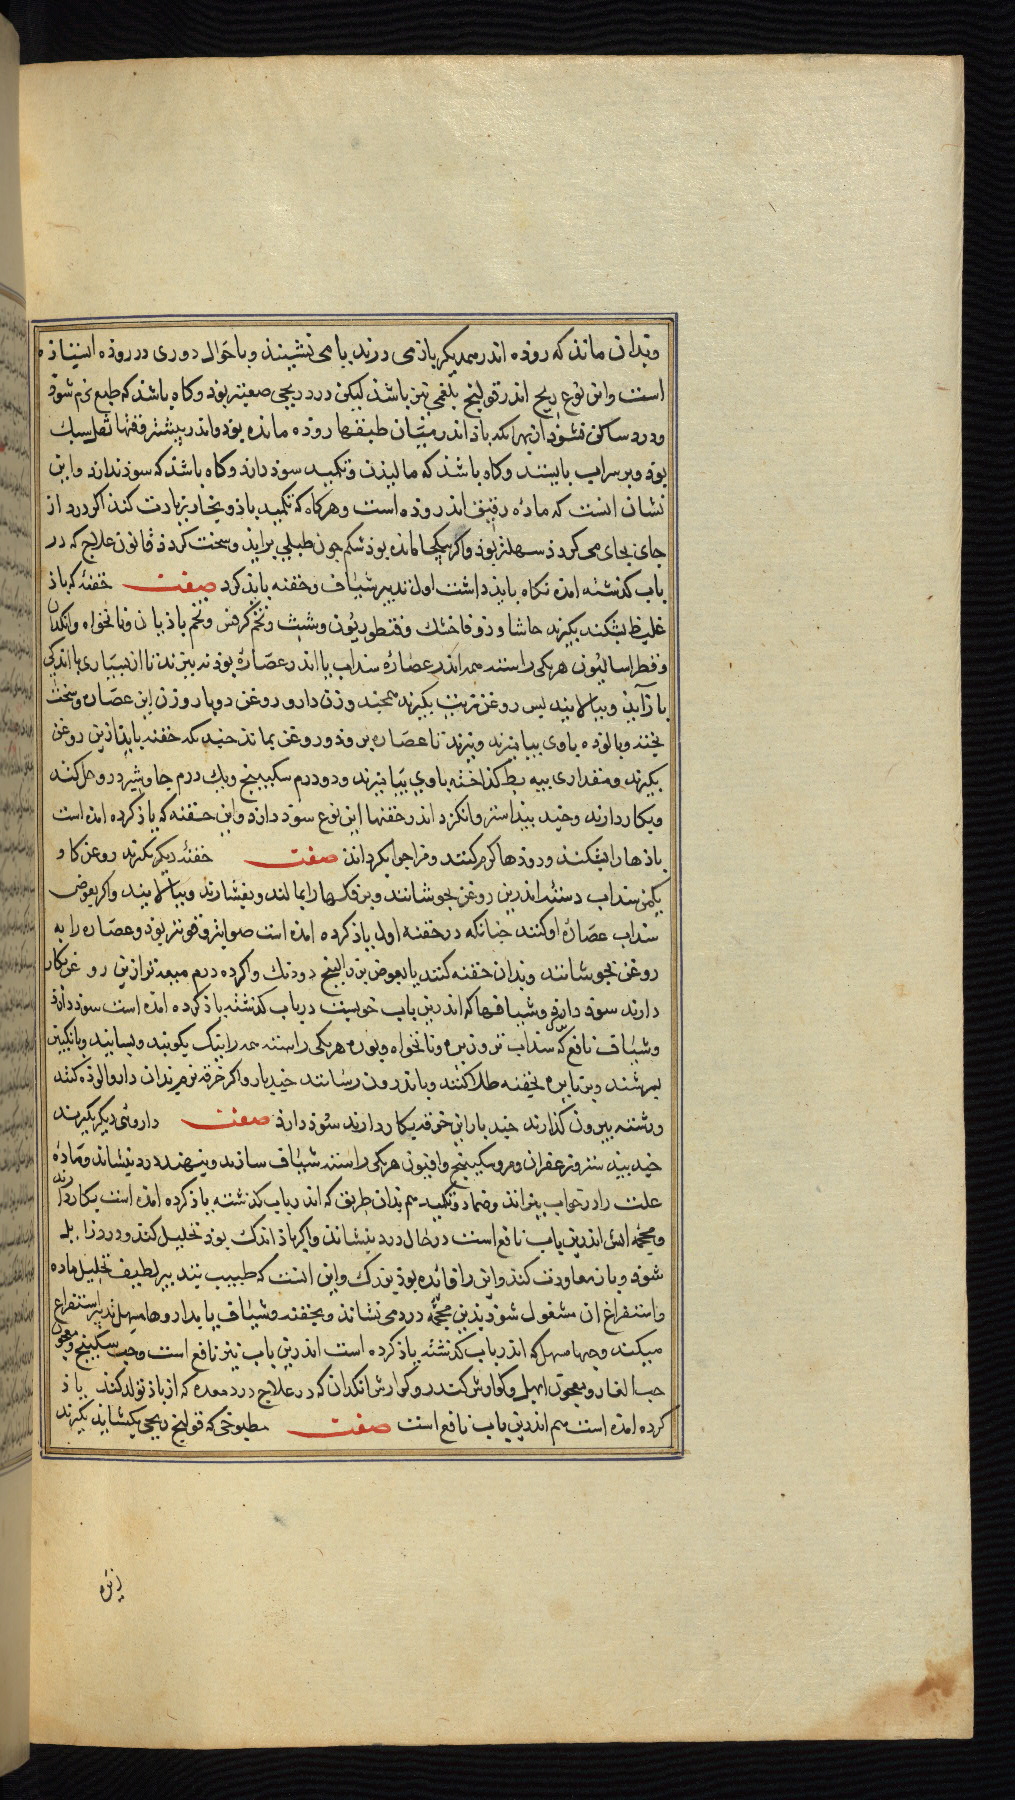 وبدان ماند که روده اندر همدیکر باز می درزند یا می نشیند و یا جوال دوزی در روده ایستاده
است و این نوع ریح اندر قولنج بلغمی نیز باشد لیکن درد ریحی صعبتر بود و کاه باشد که طبع نرم شود
و درد ساکن نشود از بهر انکه باذ اندر میان طبقهاء روده مانده بود و اندر بیشتر وقتها ثفل سبک
بود و بر سر اب بایستد و کاه باشد که مالیدن و تکمید سود دارد و کاه باشد که سود ندارد و این
نشان انست که ماده رقیق اندر روده است و هرکاه که تکمید باذ و بخار زیادت کند اکر درد از
جای بجای می کردد سهلتر بود و اکر بیکجا مانده بود شکم چون طبلی براید و سخت کردد قانون علاج که در
باب کذشته امده نکاه باید داشت اول تدبیر شیاف و حقنه باید کرد صفت حقنهٔ که باذ
غلیظ بشکند بکیرند حاشا و زوفا خشک و قنطوریون و شبث و تخم کرفس و تخم باذیان و نانخواه و انکدان
و فطراسالیون هر یکی راستنه همه اندر عصارهٔ سداب یا اندر عصارهٔ پودنه بپزند تا از بسیاری با اندکی
باز آید و بپالایند پس روغن زیت بکیرند همچند وزن دارو و روغن دو بار وزن این عصاره سخت
پخته و پالوده با وی بیامیزند و بپزند تا عصاره برود و روغن بماند چندانکه حقنه باید ازین روغن
بکیرند و مقداری پیه بط کداخته با وی بیامیزند و دو درم سکبینج و یک درم جاوشیر درو حل کنند
و بکار دارند و جند بیداستر و انکزد اندر حقنها این نوع سود دارد و این حقنه که یاذ کرده امده است
باذها را بشکند و رودها کرم کند و مزاج را بکرداند صفت حقنهٔ دیکر بکیرند روغن کاو
یکمن سداب دسته اندرین روغن بجوشانند و برفکلها را بمالند و بفشارند و بپالایند و اکر بعوض
سداب عصارهٔ او کنند چنانکه در حقنه اول یاذ کرده امده است صوابتر و قوی تر بود و عصاره را به
روغن بجوشانند و بدان حقنه کنند یا بعوض بزر البنج دودنک واکرده درم میعه تر ازین روغن بکار
دارند سود دارد و شیافها که اندرین باب خویست در باب کذشته یاذ کرده امده است سود دارد
و شیاف نافع که سداب تر و زیره و نانخواه و بوره هر یکی راستنه همه را نیک بکوبند و بسایند و بانکبین
بسرشند و بن نایره بحقنه طلا کنند و باندرون رسانند چند بار و اکر خرقهٔ نرم بدان دارو الوده کنند
و رشته بیرون کذارند چند بار این خرقه بکار دارند سود دارد صفت داروئی دیکر بکیرند
جند بیدستر و زعفران و مر و سکبینج و افیون هر یکی راستنه شیاف سازند و بنهند درد بنشاند و مادهٔ
علت را در خواب بپزاند و ضماد و تکمید هم بدان طریق که اندر باب کذشته یاذ کرده امده است بکار دارند
و محجمهٔ اتشی اندرین باب نافع است در حال درد بنشاند و اکر باذ اندک بود تحلیل کند و درد زایل
شود و باز معاودت کند و این را فایده بود بزرک و این انست که طبیب بتدبیر لطیف تحلیل ماده
و استفراغ ان مشغول شود بدین محجمه درد می نشاند و بحقنه و شیاف یا بداروها مسهل تدبیر استفراغ
میکند و حبها مسهل که اندر باب کذشته یاذ کرده است اندرین باب نیز نافع است و حب سکبینج و معجون
حب الغار و معجون ابهل و کوارش کندر و کوارش انکدان که در علاج درد معده که از باذ تولد کند یاذ
کرده امده است هم اندرین باب نافع است صفت مطبوخی که قولنج ریحی بکشاید بکیرند